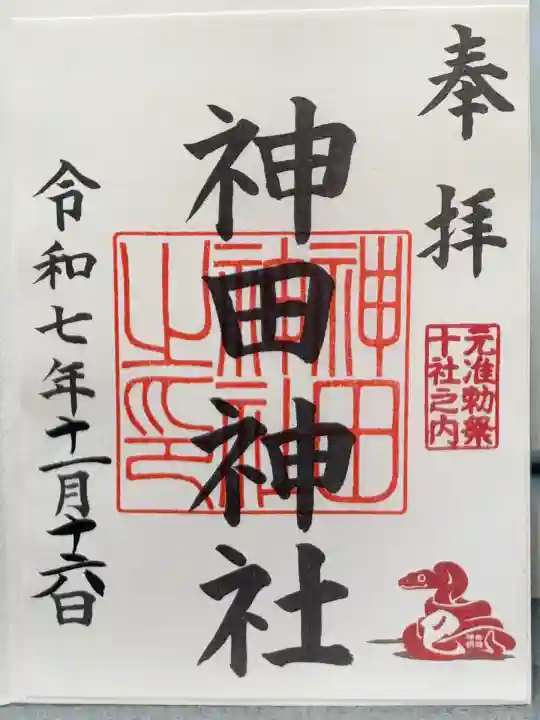 奉拝
元准勅祭
十社之内
神田神社
神田
神社
之印
令和七年十一月十六日